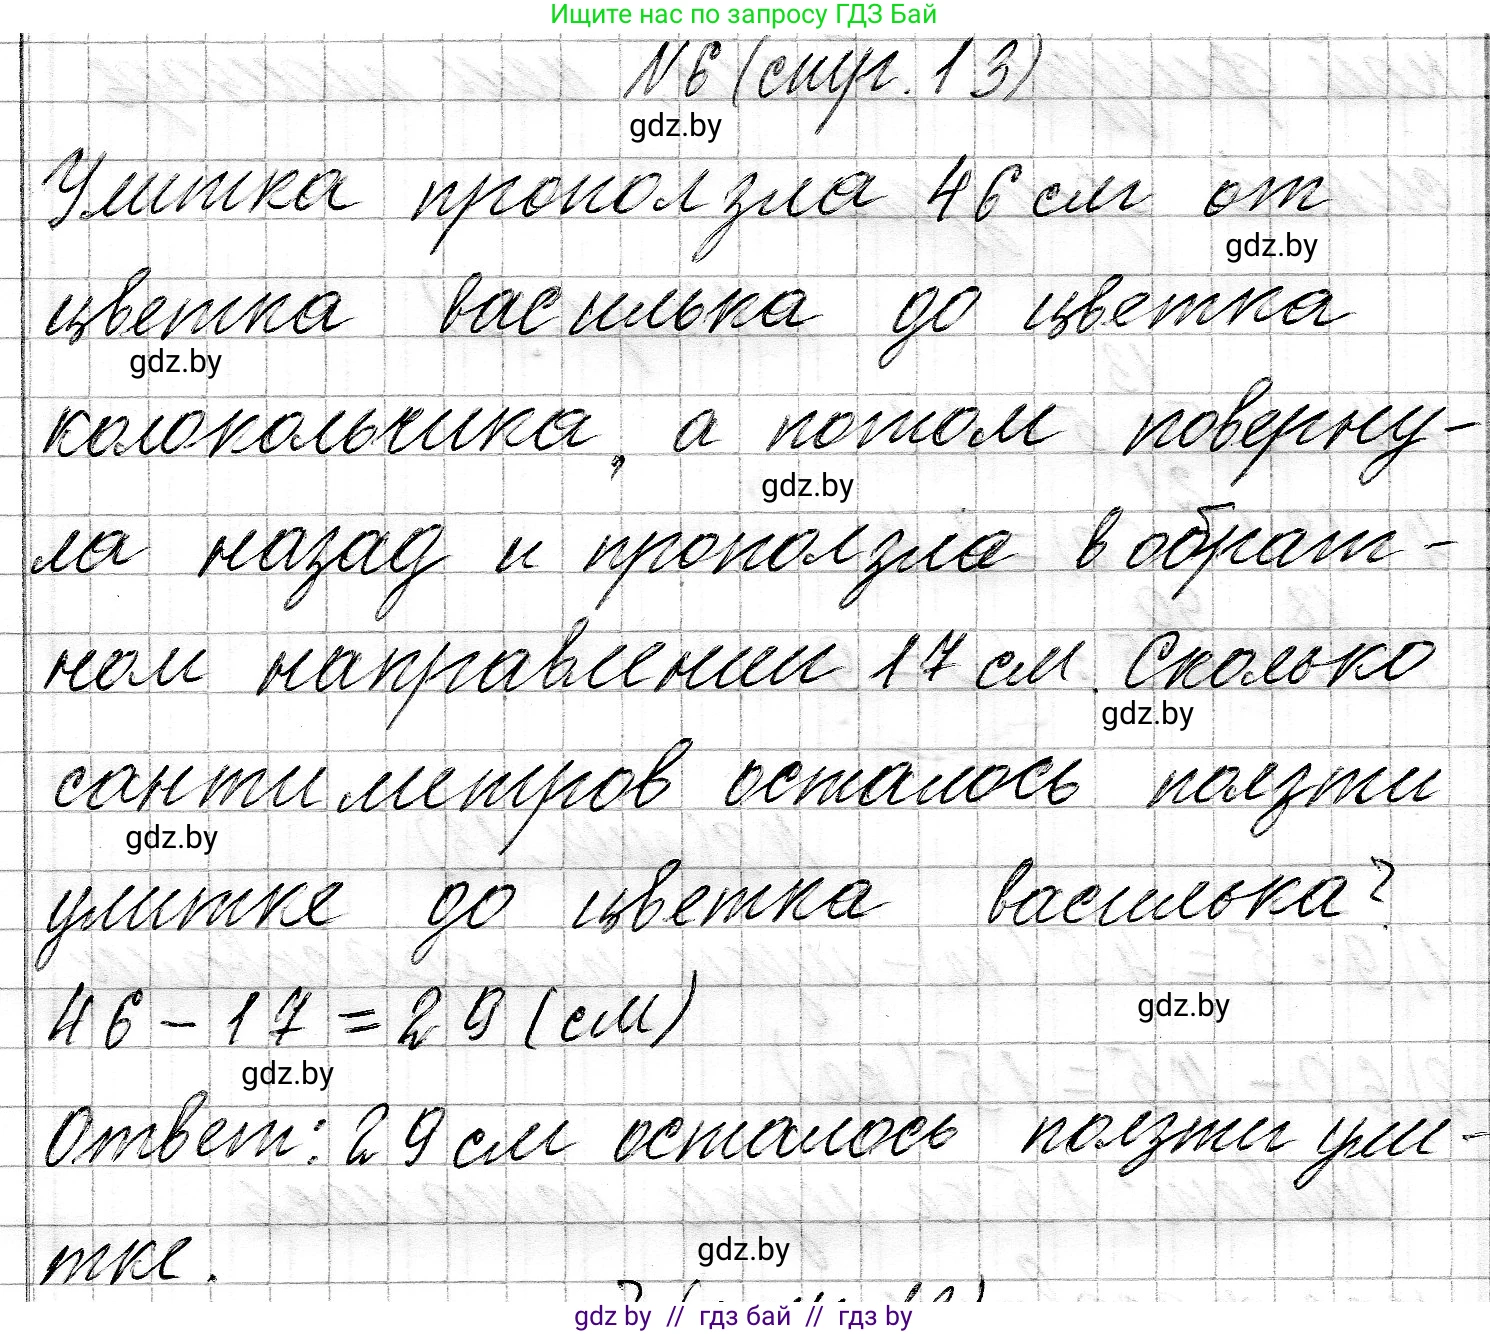 Ищите нас по запросу ГДЗ Бай
№6 (стр. 13)
gdz.by
Улитка проползла 46 см от
gdz.by
цветка василька до цветка
gdz.by
колокольчика, а потом поверну-
gdz.by
ла назад и проползла в обрат-
ном направлении 17 см. Сколько
gdz.by
сантиметров осталось ползти
gdz.by
улитке до цветка василька?
46 - 17 = 29 (см)
gdz.by
gdz.by
Ответ: 29 см осталось ползти ули-
тке.
gdz.by
gdz.by // гдз бай // гдз by